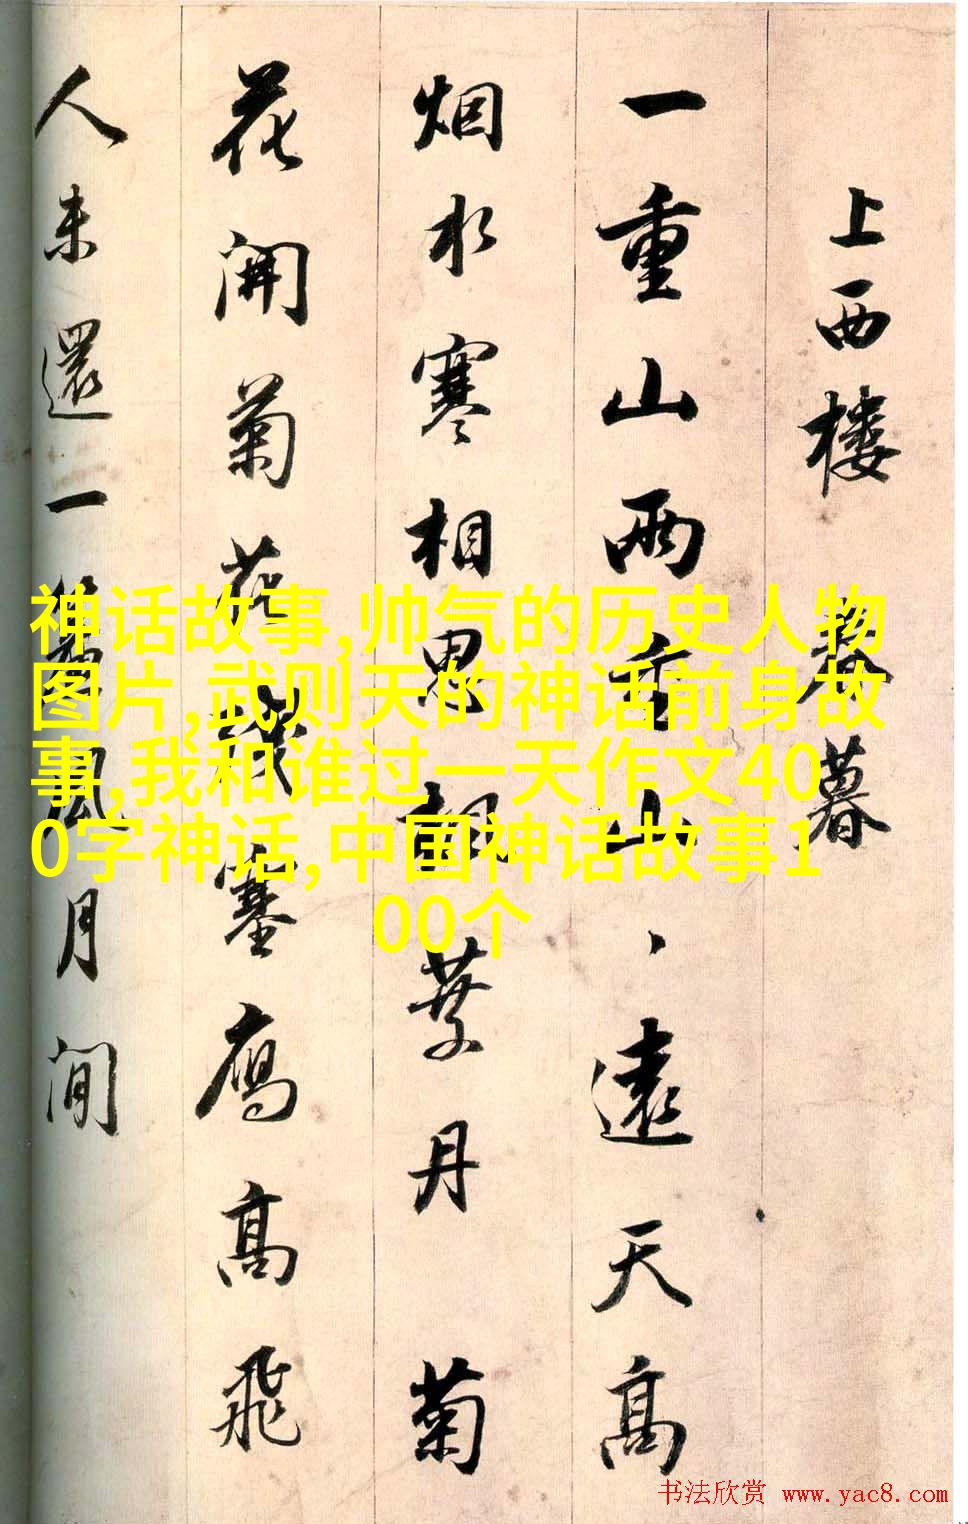 上西楼 春暮
一重山兩重山、遠天高
烟水寒相思楓葉丹 菊
花開菊花殘塞鴈高飛
人未還一簾風月閒
神话故事,帅气的历史人物
图片,武则天的神话前身故
事,我和谁过一天作文40
0字神话,中国神话故事1
00个
书法欣赏 www.yac8.com